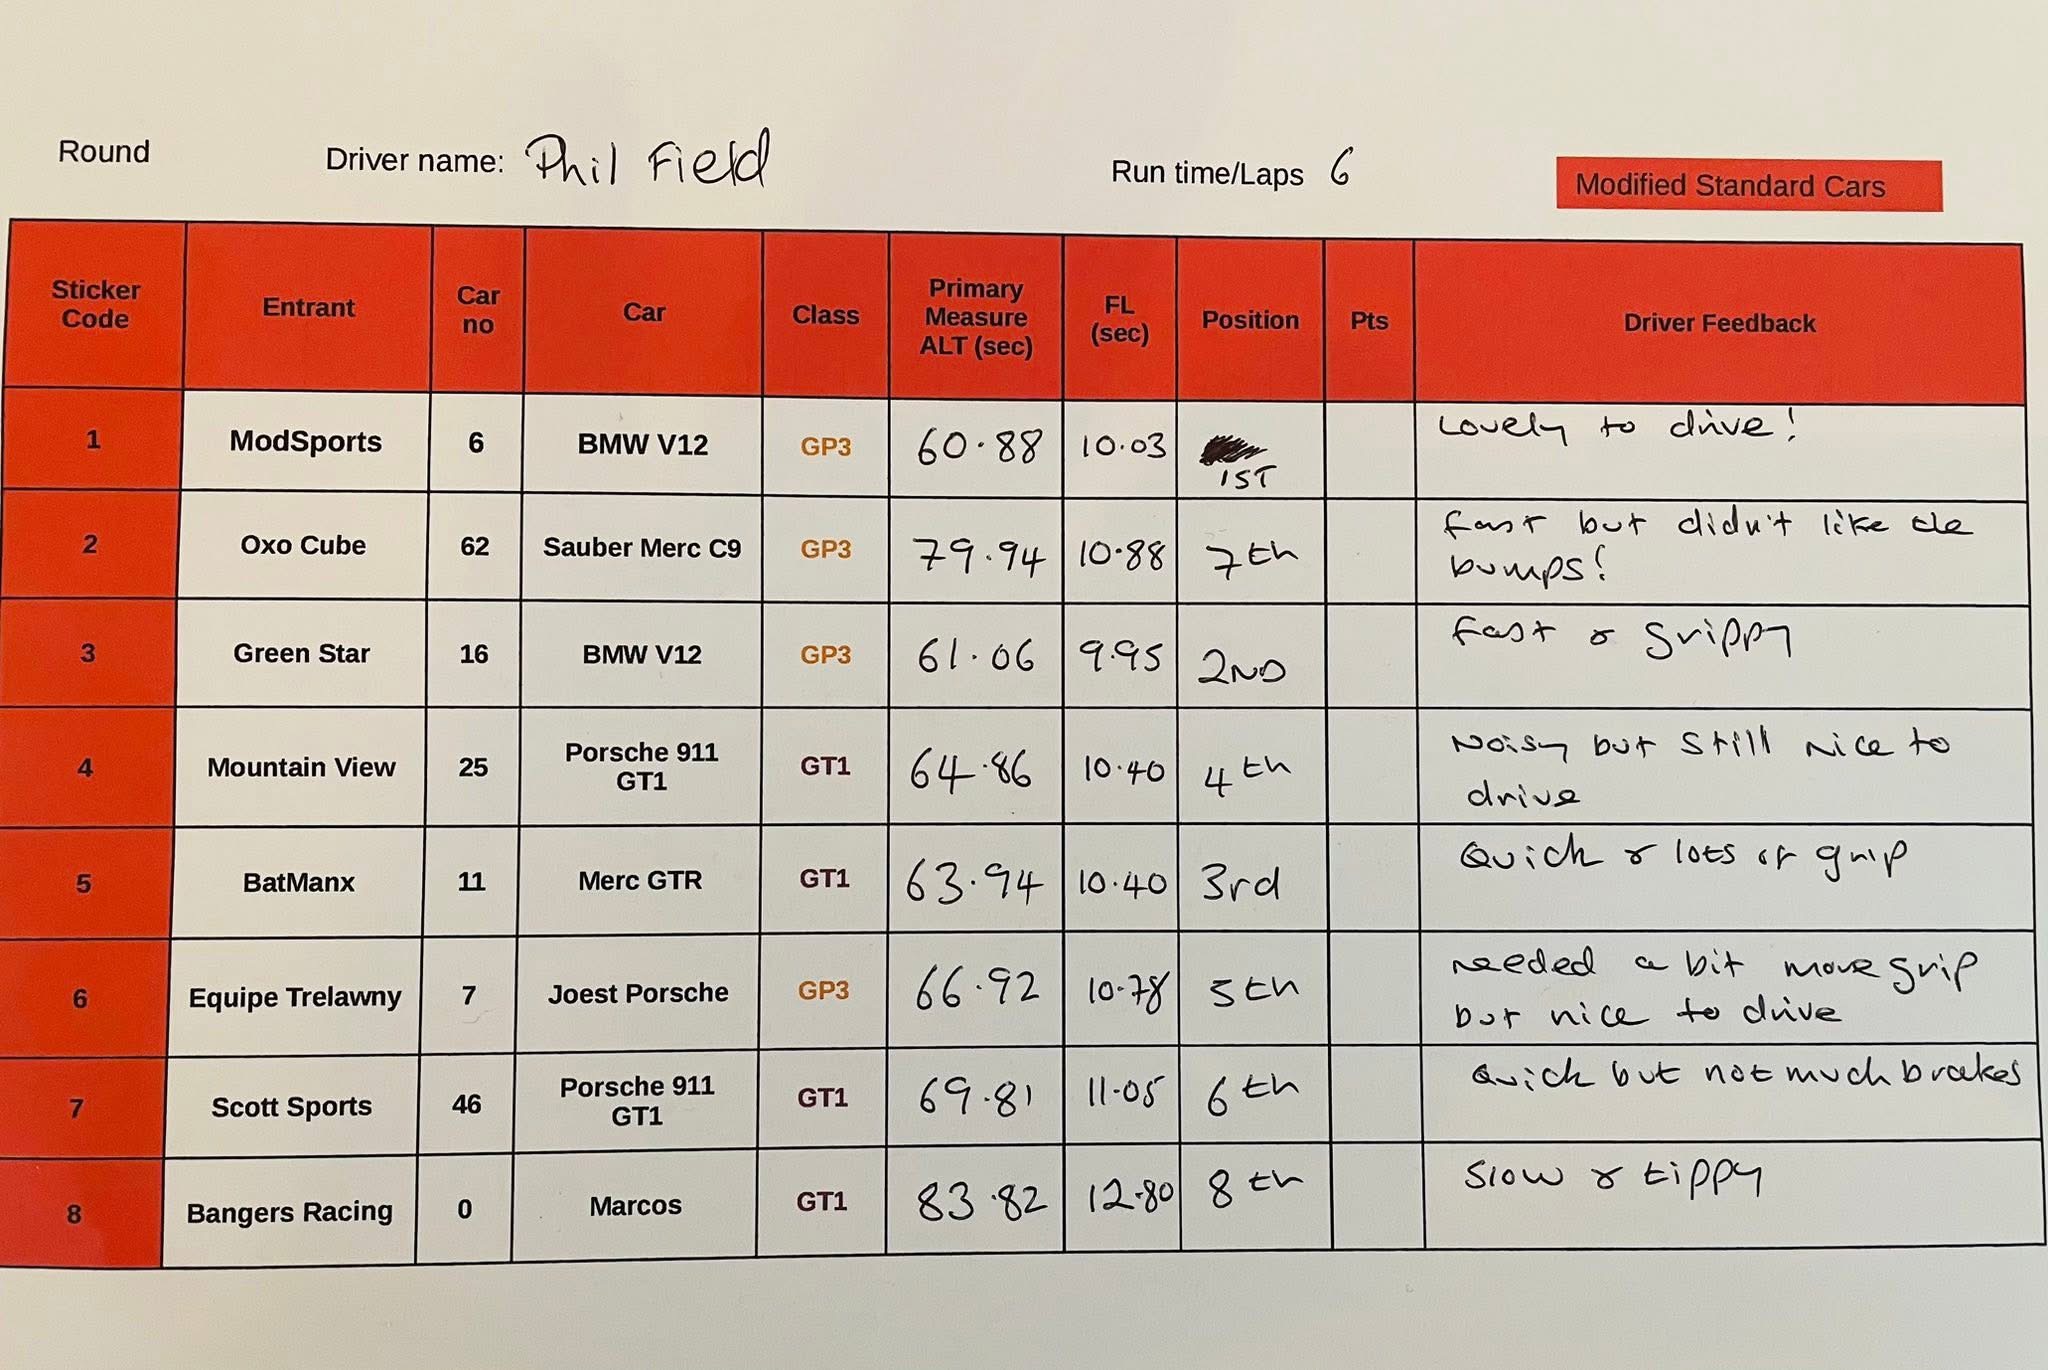 Round Driver name: Phil Field Run time/Laps 6 Modified Standard Cars
Sticker Code Entrant Car no Car Class Primary Measure ALT (sec) FL (sec) Position Pts Driver Feedback
1 ModSports 6 BMW V12 GP3 60.88 10.03 1ST Lovely to drive!
2 Oxo Cube 62 Sauber Merc C9 GP3 79.94 10.88 7th Fast but didn't like the
bumps!
3 Green Star 16 BMW V12 GP3 61.06 9.95 2ND Fast & grippy
4 Mountain View 25 Porsche 911 GT1 GT1 64.86 10.40 4th Noisy but still nice to
drive
5 BatManx 11 Merc GTR GT1 63.94 10.40 3rd Quick & lots of grip
6 Equipe Trelawny 7 Joest Porsche GP3 66.92 10.78 5th needed a bit more grip
but nice to drive
7 Scott Sports 46 Porsche 911 GT1 GT1 69.81 11.05 6th Quick but not much brakes
8 Bangers Racing 0 Marcos GT1 83.82 12.80 8th Slow & tippy